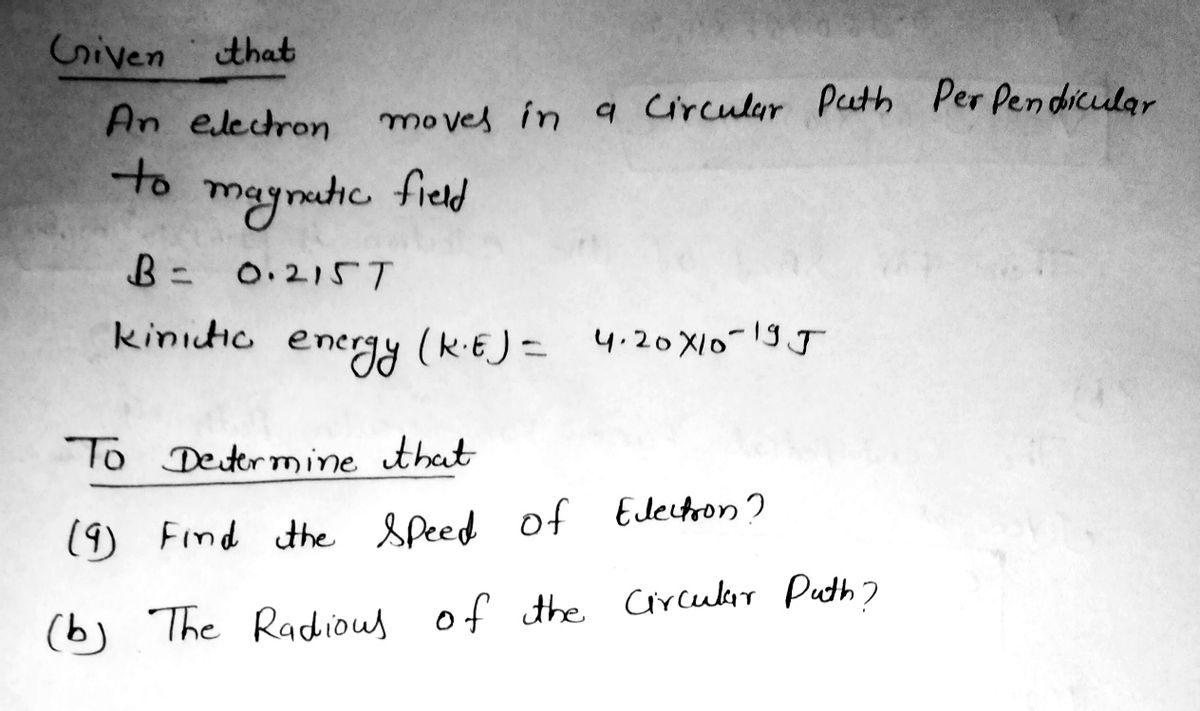 Given that
An electron moves in a Circular Path Perpendicular
to magnatic field
B = 0.215T
kinictic energy (K.E) = 4.20X10-19 J
To Determine that
(a) Find the Speed of Electron?
(b) The Radious of the Circular Path?